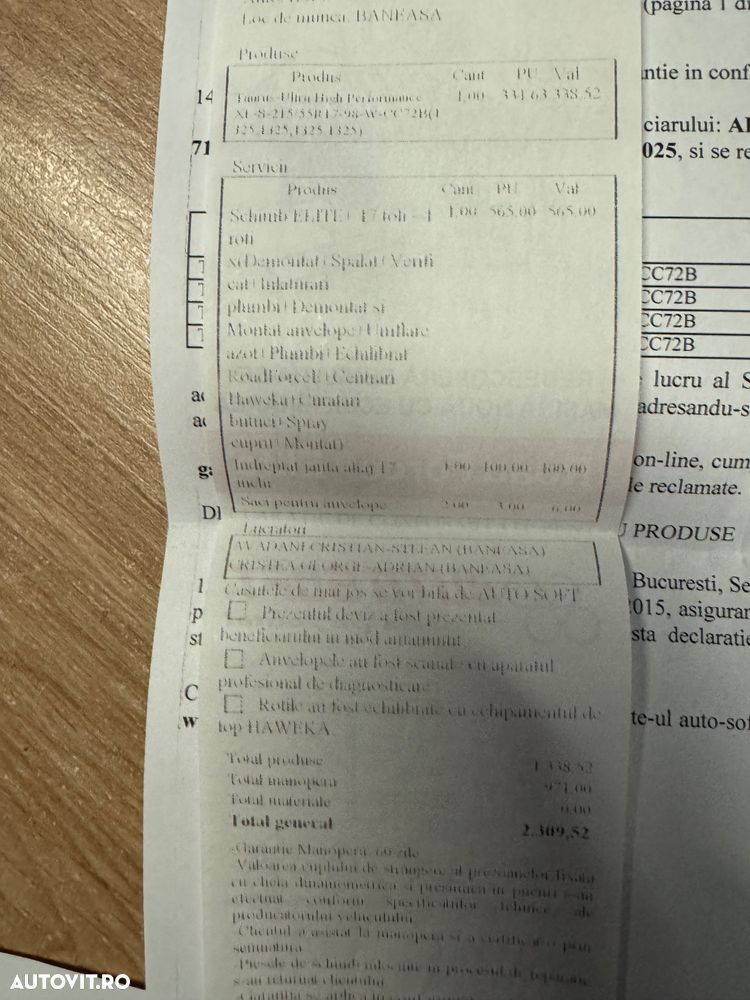 Loc de munca: BANEASA
(pagina 1 di
Produse
Produs Cant PU Val
Taurus-Ultra High Performance 334.63 338,52
XL-S-215/55R17-98-W-CC72B(1
325,1325,1325,1325)
Servicii
Produs Cant PU Val
Schimb ELITE+ 17 toli - 4 1,00 565,00 565,00
roti
x(Demontat+Spalat+Verifi
cat+Inlaturari
plumbi+Demontat si
Montat anvelope+Umflare
azot+Plumbi+Echilibrat
RoadForceE+Centrari
Haweka+Curatari
butuci+Spray
cupru+Montat)
Indreptat janta aliaj 17 1,00 400,00 400,00
inchi
Saci pentru anvelope 2,00 3,00 6,00
Lucratori
WADANI CRISTIAN-STEFAN (BANEASA)
CRISTEA GEORGE-ADRIAN (BANEASA)
Casutele de mai jos se vor bifa de AUTO SOFT
Prezentul deviz a fost prezentat
beneficiarului in mod amanuntit
Anvelopele au fost scanate cu aparatul
profesional de diagnosticare
Rotile au fost echilibrate cu echipamentul de
top HAWEKA
Total produse 1.338,52
Total manopera 971,00
Total materiale 0,00
Total general 2.309,52
-Garantie Manopera: 60 zile
-Valoarea cuplului de strangere al prezoanelor fixata
cu cheia dinamometrica si presiunea in pneuri s-au
efectuat conform specificatiilor tehnice ale
producatorului vehiculului.
-Clientul a asistat la manopera si a certificat-o prin
semnatura
-Piesele de schimb inlocuite in procesul de reparare
s-au returnat clientului
14
71
ntie in conf
ciarului: AI
025, si se re
CC72B
CC72B
CC72B
CC72B
lucru al S
adresandu-s
on-line, cum
le reclamate.
PRODUSE
Bucuresti, Se
2015, asigurar
sta declaratie
te-ul auto-sof
AUTOVIT.RO